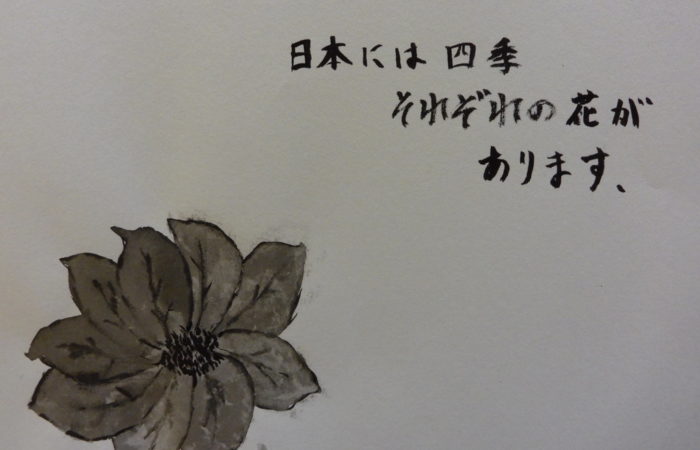 日本には四季
それぞれの花が
あります、